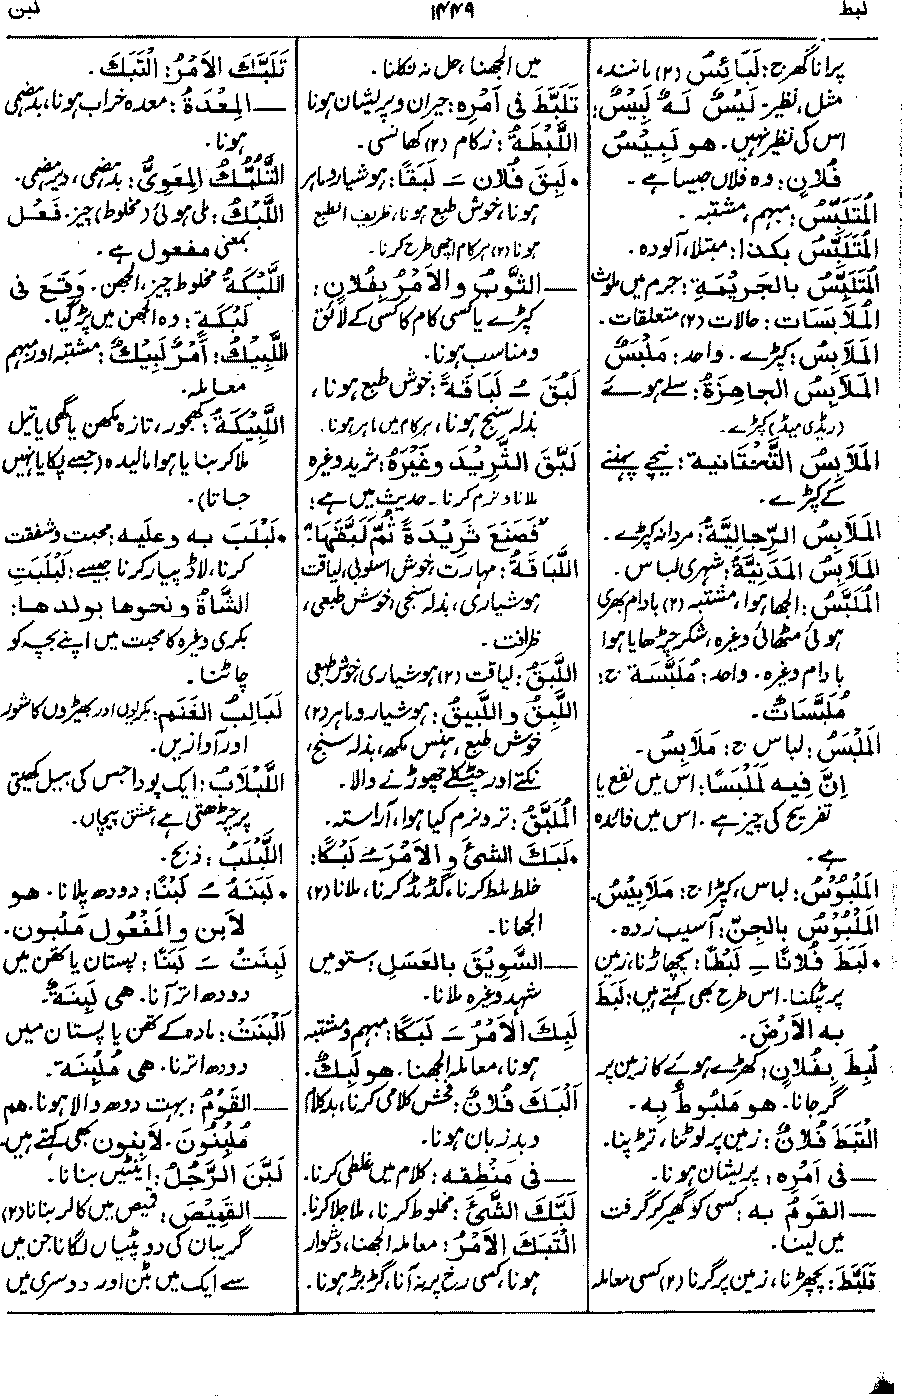 لبط
۱۴۴۹
لبن
پرانا گھر ج: لَبَائِسُ (۲) مانند،
مثل، نظیر۔ لَيْسَ لَهُ لَبِيْسٌ:
اس کی نظیر نہیں۔ هو لَبِيْسُ
فُلَانٍ: وہ فلاں جیسا ہے۔
الْمُتَلَبِّسُ: مبہم، مشتبہ۔
الْمُتَلَبِّسُ بكذا: مبتلا، آلودہ۔
الْمُتَلَبِّسُ بالجَرِيْمَةِ: جرم میں ملوث
الْمُلَابَسَات: حالات (۲) متعلقات۔
الْمَلَابِسُ: کپڑے۔ واحد: مَلْبَسٌ
الْمَلَابِسُ الجاهِزَةُ: سلے ہوئے
(ریڈی میڈ) کپڑے۔
الْمَلَابِسُ التَّحْتَانِية: نیچے پہننے
کے کپڑے۔
الْمَلَابِسُ الرِّجاليَّةُ: مردانہ کپڑے۔
الْمَلَابِسُ المَدَنِيَّةُ: شہری لباس۔
الْمُلَبَّسُ: الجھا ہوا، مشتبہ (۲) بادام بھری
ہوئی مٹھائی وغیرہ، شکر چڑھایا ہوا
بادام وغیرہ۔ واحد: مُلَبَّسَة ج:
مُلَبَّسَاتٌ۔
الْمَلْبَسُ: لباس ج: مَلَابِسُ۔
إِنَّ فيه لَمَلْبَسًا: اس میں نفع یا
تفریح کی چیز ہے۔ اس میں فائدہ
ہے۔
الْمَلْبُوْسُ: لباس، کپڑا ج: مَلَابِيْسُ۔
الْمَلْبُوْسُ بالجِنِّ: آسیب زدہ۔
• لَبَطَ فُلَانًا ـِ لَبْطًا: پچھاڑنا، زمین
پر پٹکنا۔ اس طرح بھی کہتے ہیں: لَبَطَ
به الأرْضَ۔
لُبِطَ بِفُلَانٍ: کھڑے ہوئے کا زمین پر
گر جانا۔ هو مَلْبُوطٌ بِه۔
الْتَبَطَ فُلَانٌ: زمین پر لوٹنا، تڑپنا۔
— فى أمْرِه: پریشان ہونا۔
— القَوْمُ به: کسی کو گھیر کر گرفت
میں لینا۔
تَلَبَّطَ: پچھڑنا، زمین پر گرنا (۲) کسی معاملہ
میں الجھنا، حل نہ نکلنا۔
تَلَبَّطَ فى أَمْرِه: حیران و پریشان ہونا
اللَّبْطَةُ: زکام (۲) کھانسی۔
• لَبِقَ فُلَان ـَ لَبَقًا: ہوشیار و ماہر
ہونا، خوش طبع ہونا، ظریف الطبع
ہونا (۲) ہر کام اچھی طرح کرنا۔
— الثَّوبُ و الأمْرُ بِفُلَانٍ:
کپڑے یا کسی کام کا کسی کے لائق
و مناسب ہونا۔
لَبُقَ ـُ لَبَاقَةً: خوش طبع ہونا،
بذلہ سنج ہونا، ہر کام میں ماہر ہونا۔
لَبَّقَ الثَّرِيْدَ وغَيْرَهُ: ثرید وغیرہ
ملانا و نرم کرنا۔ حدیث میں ہے:
"فَصَنَعَ ثَرِيْدَةً ثُمَّ لَبَّقَهَا"
اللَّبَاقَةُ: مہارت، خوش اسلوبی، لیاقت
ہوشیاری، بذلہ سنجی، خوش طبعی،
ظرافت۔
اللَّبَقُ: لیاقت (۲) ہوشیاری، خوش طبعی
اللَّبِقُ واللَّبِيقُ: ہوشیار و ماہر (۲)
خوش طبع، ہنس مکھ، بذلہ سنج،
نکتے اور چٹکلے چھوڑنے والا۔
الْمُلَبَّقُ: تر و نرم کیا ہوا، آراستہ۔
• لَبَكَ الشئَ و الأمْرَ ـُ لَبْكًا:
خلط ملط کرنا، گڈمڈ کرنا، ملانا (۲)
الجھانا۔
— السَّوِيْقَ بالعَسَلِ: ستو میں
شہد وغیرہ ملانا۔
لَبِكَ الأَمْرُ ـَ لَبَكًا: مبہم و مشتبہ
ہونا، معاملہ الجھنا۔ هو لَبِكٌ۔
أَلْبَكَ فُلَانٌ: فحش کلامی کرنا، بد کلام
و بد زبان ہونا۔
— فى مَنْطِقِه: کلام میں غلطی کرنا۔
لَبَّكَ الشَّئَ: مخلوط کرنا، ملا جلا کرنا۔
الْتَبَكَ الأمْرُ: معاملہ الجھنا، دشوار
ہونا، کسی رخ پر نہ آنا، گڑبڑ ہونا۔
تَلَبَّكَ الأمْرُ: الْتَبَكَ۔
— المِعْدَةُ: معدہ خراب ہونا، بدہضمی
ہونا۔
التَّلَبُّكُ المِعَوِيُّ: بدہضمی، دیر ہضمی۔
اللَّبْكُ: ملی ہوئی (مخلوط) چیز۔ فَعْل
بمعنی مفعول ہے۔
اللَّبْكَةُ: مخلوط چیز، الجھن۔ وَقَعَ فى
لَبْكَة: وہ الجھن میں پڑ گیا۔
اللَّبِيْكُ: أَمْرٌ لَبِيْكٌ: مشتبہ اور مبہم
معاملہ۔
اللَّبِيْكَةُ: کھجور، تازہ مکھن یا گھی یا تیل
ملا کر بنایا ہوا مالیدہ (جسے پکایا نہیں
جاتا)۔
• لَبْلَبَ به وعليه: محبت و شفقت
کرنا، لاڈ پیار کرنا جیسے: لَبْلَبَتِ
الشَّاةُ و نحوها بولدها:
بکری وغیرہ کا محبت میں اپنے بچہ کو
چاٹنا۔
لَبَالِبُ الغَنَم: بکریوں اور بھیڑوں کا شور
اور آوازیں۔
اللَّبْلَابُ: ایک پودا جس کی بیل کھیتی
پر چڑھتی ہے، عشق پیچاں۔
اللَّبْلَبُ: ذبح۔
• لَبَنَهُ ـُ لَبْنًا: دودھ پلانا۔ هو
لَابِن والمَفْعُول مَلْبُون۔
لَبِنَتْ ـَ لَبَنًا: پستان یا تھن میں
دودھ اتر آنا۔ هى لَبِنَةٌ۔
أَلْبَنَتْ: مادہ کے تھن یا پستان میں
دودھ اترنا۔ هى مُلْبِنَة۔
— القَوْمُ: بہت دودھ والا ہونا۔ هم
مُلْبِنُونَ۔ لَابِنون بھی کہتے ہیں۔
لَبَّنَ الرَّجُلُ: اینٹیں بنانا۔
— القَمِيْصَ: قمیص میں کالر بنانا (۲)
گریبان کی دو پٹیاں لگانا جن میں
سے ایک میں بٹن اور دوسری میں